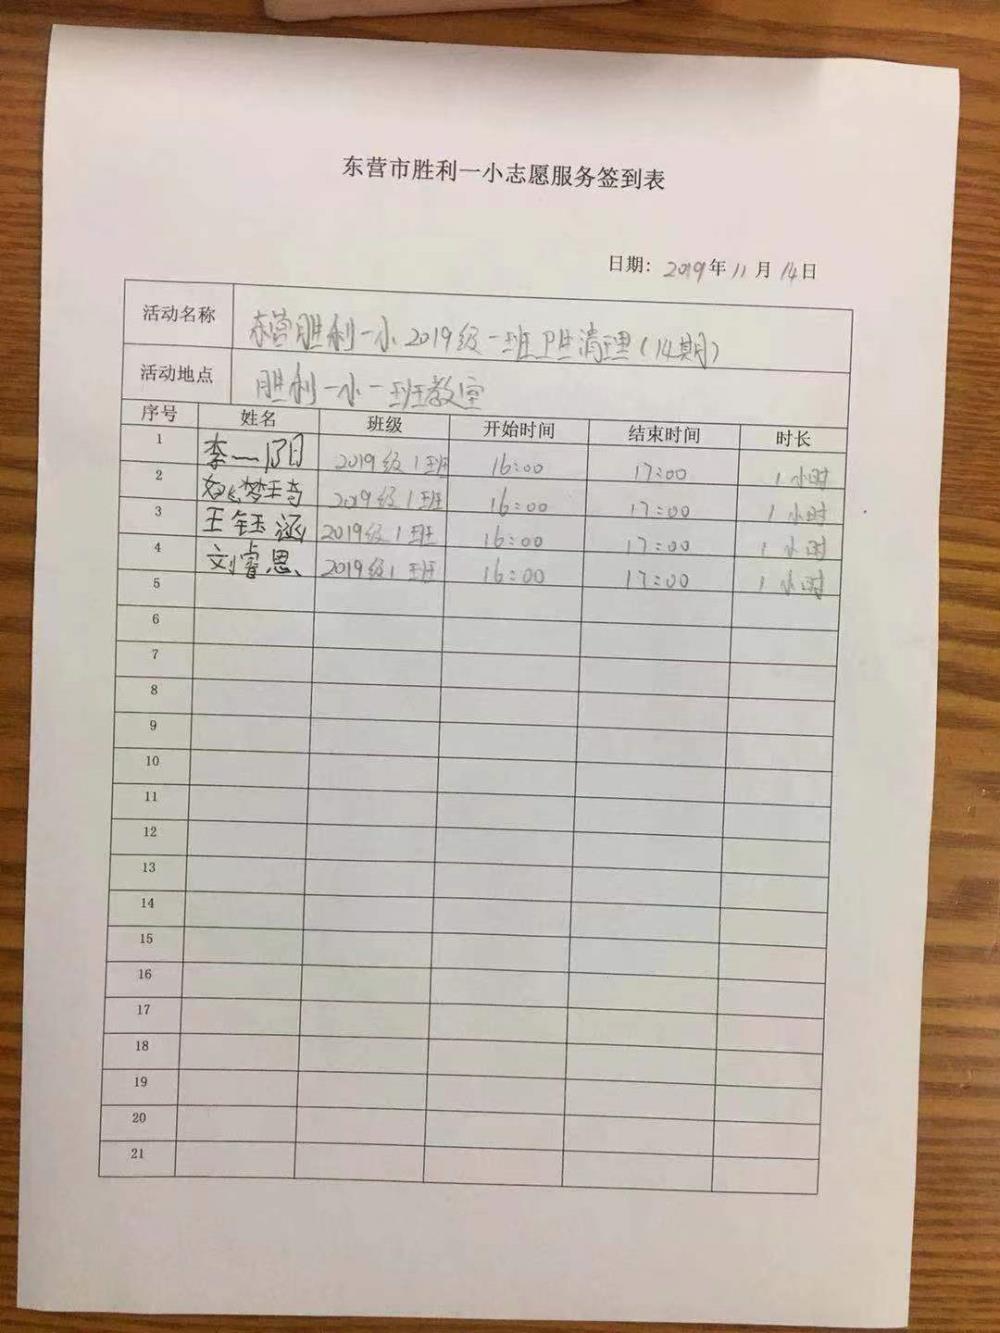 东营市胜利一小志愿服务签到表
日期: 2019年11月14日
活动名称 东营胜利一小2019级一班卫生清理(14期)
活动地点 胜利一小一班教室
序号 姓名 班级 开始时间 结束时间 时长
1 李一 2019级1班 16:00 17:00 1小时
2 姚梦琦 2019级1班 16:00 17:00 1小时
3 王钰涵 2019级1班 16:00 17:00 1小时
4 刘睿思 2019级1班 16:00 17:00 1小时
5
6
7
8
9
10
11
12
13
14
15
16
17
18
19
20
21